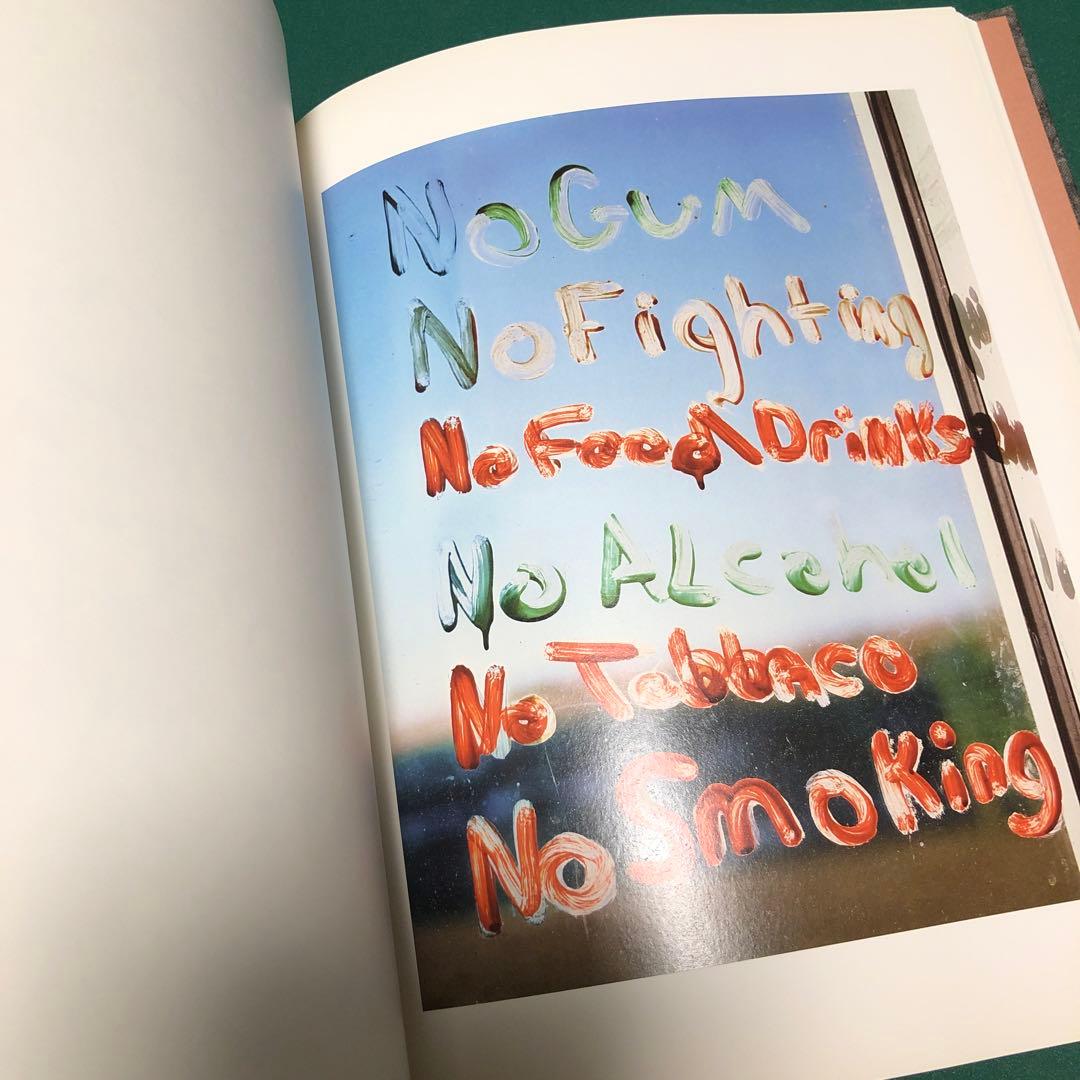 No Gum
No Fighting
No Food Drinks
No ALcohol
No Tabbaco
No Smoking